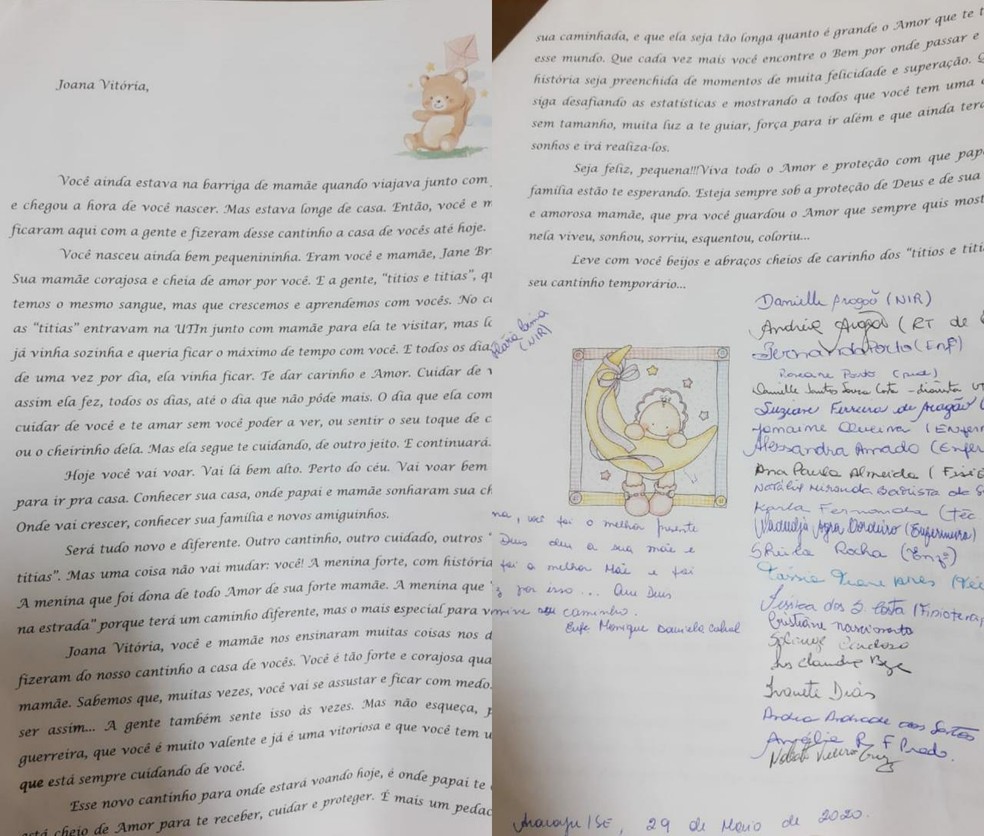 Joana Vitória,
Você ainda estava na barriga de mamãe quando viajava junto com
e chegou a hora de você nascer. Mas estava longe de casa. Então, você e m
ficaram aqui com a gente e fizeram desse cantinho a casa de vocês até hoje.
Você nasceu ainda bem pequenininha. Eram você e mamãe, Jane Br
Sua mamãe corajosa e cheia de amor por você. E a gente, "titios e titias", qu
temos o mesmo sangue, mas que crescemos e aprendemos com vocês. No co
as "titias" entravam na UTIn junto com mamãe para ela te visitar, mas lo
já vinha sozinha e queria ficar o máximo de tempo com você. E todos os dia
de uma vez por dia, ela vinha ficar. Te dar carinho e Amor. Cuidar de v
assim ela fez, todos os dias, até o dia que não pôde mais. O dia que ela com
cuidar de você e te amar sem você poder a ver, ou sentir o seu toque de c
ou o cheirinho dela. Mas ela segue te cuidando, de outro jeito. E continuará.
Hoje você vai voar. Vai lá bem alto. Perto do céu. Vai voar bem
para ir pra casa. Conhecer sua casa, onde papai e mamãe sonharam sua ch
Onde vai crescer, conhecer sua família e novos amiguinhos.
Será tudo novo e diferente. Outro cantinho, outro cuidado, outros "
titias". Mas uma coisa não vai mudar: você! A menina forte, com história
A menina que foi dona de todo Amor de sua forte mamãe. A menina que "
na estrada" porque terá um caminho diferente, mas o mais especial para v
Joana Vitória, você e mamãe nos ensinaram muitas coisas nos d
fizeram do nosso cantinho a casa de vocês. Você é tão forte e corajosa qua
mamãe. Sabemos que, muitas vezes, você vai se assustar e ficar com medo.
ser assim... A gente também sente isso às vezes. Mas não esqueça, p
guerreira, que você é muito valente e já é uma vitoriosa e que você tem u
que está sempre cuidando de você.
Esse novo cantinho para onde estará voando hoje, é onde papai te
está cheio de Amor para te receber, cuidar e proteger. É mais um pedac
sua caminhada, e que ela seja tão longa quanto é grande o Amor que te t
esse mundo. Que cada vez mais você encontre o Bem por onde passar e
história seja preenchida de momentos de muita felicidade e superação. Q
siga desafiando as estatísticas e mostrando a todos que você tem uma
sem tamanho, muita luz a te guiar, força para ir além e que ainda terá
sonhos e irá realiza-los.
Seja feliz, pequena!!!Viva todo o Amor e proteção com que pap
família estão te esperando. Esteja sempre sob a proteção de Deus e de sua
e amorosa mamãe, que pra você guardou o Amor que sempre quis most
nela viveu, sonhou, sorriu, esquentou, coloriu...
Leve com você beijos e abraços cheios de carinho dos "titios e titi
seu cantinho temporário...
Lima
(NIR)
Danielle Aragão (NIR)
Andréa Aragão (RT de
Fernanda Porto (Enfª)
Roseane Porto
Danielle Santos Souza Costa - diarista UT
Suziane Ferreira de Aragão (
Jomaime Oliveira (Enferm
Alessandra Amado (Enfer
Ana Paula Almeida (Fisio
Natália Miranda Batista de S
Karla Fernanda (Téc
Cordeiro (Enfermeira)
Sheila Rocha (Enfª)
Tássia (Téc
Jéssica dos S Costa (Fisioterap
Cristiane nascimento
Solange Cardoso
Claudia
Ivanete Dias
Andréa Andrade dos Santos
Amélia R F Prado.
na, você foi o melhor presente
Deus deu a sua mãe e
foi a melhor Mãe e foi
por isso... Que Deus
seu caminho.
Enfª Monique Daniela Cabral
Aracaju/SE, 29 de Maio de 2020.